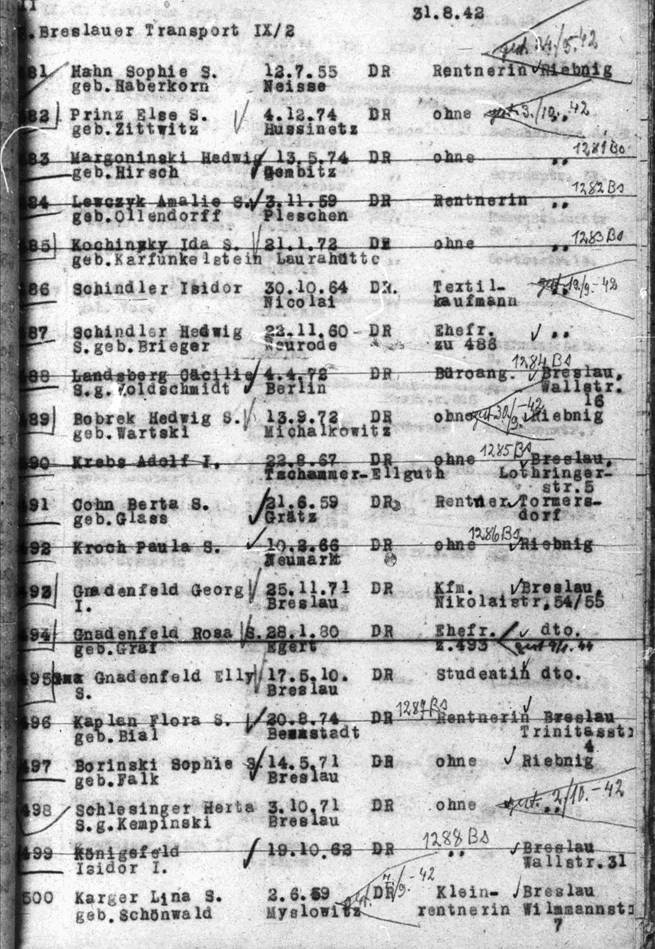 II
31.8.42
.Breslauer Transport IX/2
gest. 14./9.-42
481 Hahn Sophie S. 12.7.55 DR Rentnerin Riebnig
geb.Haberkorn Neisse
482 Prinz Else S. 4.12.74 DR ohne gest. 3./10.-42
geb.Zittwitz Hussinetz
483 Margoninski Hedwig 13.5.74 DR ohne ,, 1281 Bs
geb.Hirsch Gembitz
484 Lewczyk Amalie S. 3.11.59 DR Rentnerin ,, 1282 Bs
geb.Ollendorff Pleschen
485 Kochinsky Ida S. 21.1.72 DR ohne ,, 1283 Bs
geb.Karfunkelstein Laurahütte
486 Schindler Isidor 30.10.64 DR. Textil- ,, -42
Nicolai kaufmann
487 Schindler Hedwig 22.11.60 DR Ehefr. ,,
S.geb.Brieger Neurode zu 486
488 Landsberg Cäcilie 4.4.72 DR Büroang. 1284 Bs Breslau,
S.g.Goldschmidt Berlin Wallstr.
16
489 Bobrek Hedwig S. 13.9.72 DR ohne gest. 30/9.-42 Riebnig
geb.Wartski Michalkowitz
490 Krebs Adolf I. 22.8.67 DR ohne 1285 Bs Breslau,
Tschammer-Ellguth Lothringer-
str.5
491 Cohn Berta S. 21.6.59 DR Rentner Tormers-
geb.Glass Grätz dorf
492 Kroch Paula S. 10.2.66 DR ohne 1286 Bs Riebnig
Neumarkt
493 Gnadenfeld Georg 25.11.71 DR Kfm. Breslau,
I. Breslau Nikolaistr.54/55
494 Gnadenfeld Rosa S. 28.1.80 DR Ehefr. dto.
geb.Graf Egert z.493
495 Gnadenfeld Elly 17.5.10. DR Studentin dto.
S. Breslau
496 Kaplan Flora S. 20.8.74 DR 1287 Bs Rentnerin Breslau
geb.Bial Bernstadt Trinitasstr
4
497 Borinski Sophie S. 14.5.71 DR ohne Riebnig
geb.Falk Breslau
498 Schlesinger Herta 3.10.71 DR ohne gest. 2/10.-42
S.g.Kempinski Breslau
499 Königsfeld 19.10.62 DR ,, 1288 Bs Breslau
Isidor I. Wallstr.31
500 Karger Lina S. 2.6.59 DR /9.-42 Klein- Breslau
geb.Schönwald Myslowitz rentnerin Wilmannstr
7